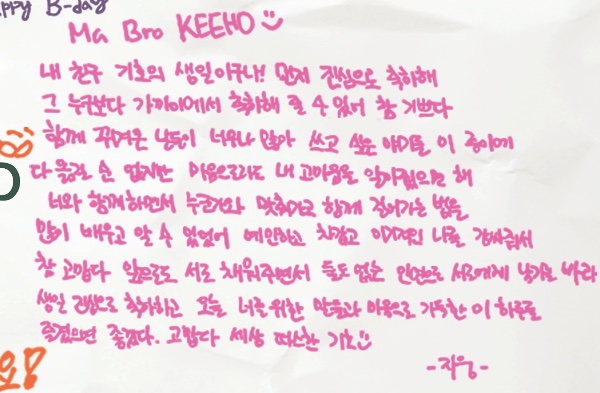 ppy B-day
Ma Bro KEEHO
내 친구 기호의 생일이구나! 먼저 진심으로 축하해
그 누구보다 가까이에서 축하해 줄 수 있어 참 기쁘다
함께 꾸며온 날들이 너무나 많아 쓰고 싶은 이야기들 이 종이에
다 올릴 순 없지만 마음으로라도 내 고마움을 알아줬으면 해
너와 함께하면서 누군가와 맞춰가고 함께 걸어가는 법을
많이 배우고 알 수 있었어 예민하고 차갑고 이기적인 나를 감싸줘서
참 고맙다 앞으로도 서로 채워주면서 둘도 없는 인연으로 서로에게 남기를 바라
생일 진심으로 축하하고 오늘 너를 위한 말들과 마음으로 가득한 이 하루를
즐겼으면 좋겠다. 고맙다 세상 따스한 기호
-지웅-
요!